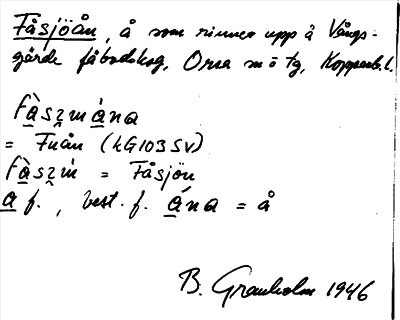 Fåsjöån, å som rinner upp å Vångs-
gärde fåbodskog, Orsa sn o tg, Kopparb. l.
fàsʒmána
= Fuån (LG103SV)
fàsʒm̀ = Fåsjön
a f., best. f. ána = å
B. Granholm 1946